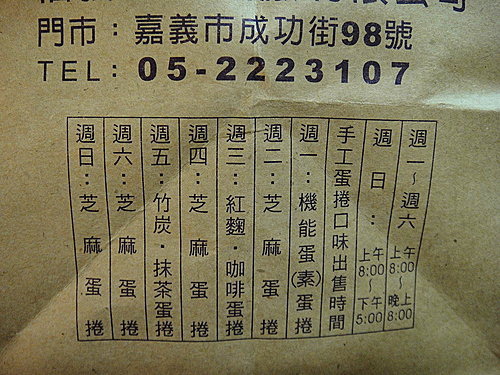 門市：嘉義市成功街98號
TEL：05-2223107
週一～週六 上午8:00～晚上8:00
週日：上午8:00～下午5:00
手工蛋捲口味出售時間
週一：機能蛋(素)蛋捲
週二：芝麻蛋捲
週三：紅麴・咖啡蛋捲
週四：芝麻蛋捲
週五：竹炭・抹茶蛋捲
週六：芝麻蛋捲
週日：芝麻蛋捲